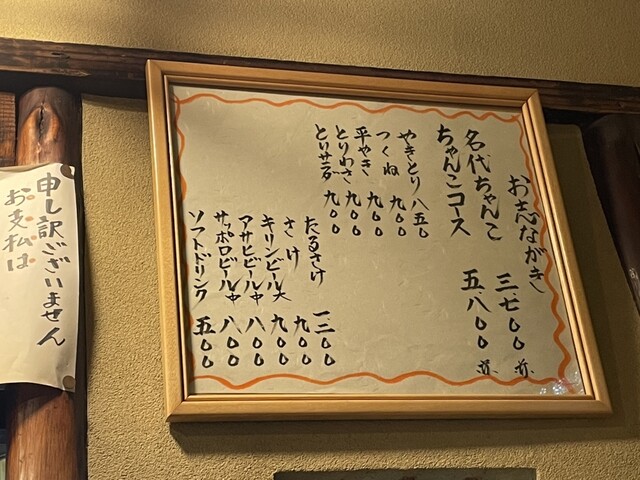 お志ながき
名代ちゃんこ 三七〇〇 前
ちゃんこコース 五八〇〇 前
やきとり 八五〇
つくね 九〇〇
平やき 九〇〇
とりわさ 九〇〇
とりサラダ 九〇〇
たるさけ 一二〇〇
さけ 九〇〇
キリンビール大 九〇〇
アサヒビール中 八〇〇
サッポロビール中 八〇〇
ソフトドリンク 五〇〇
申し訳ございません
お支払は